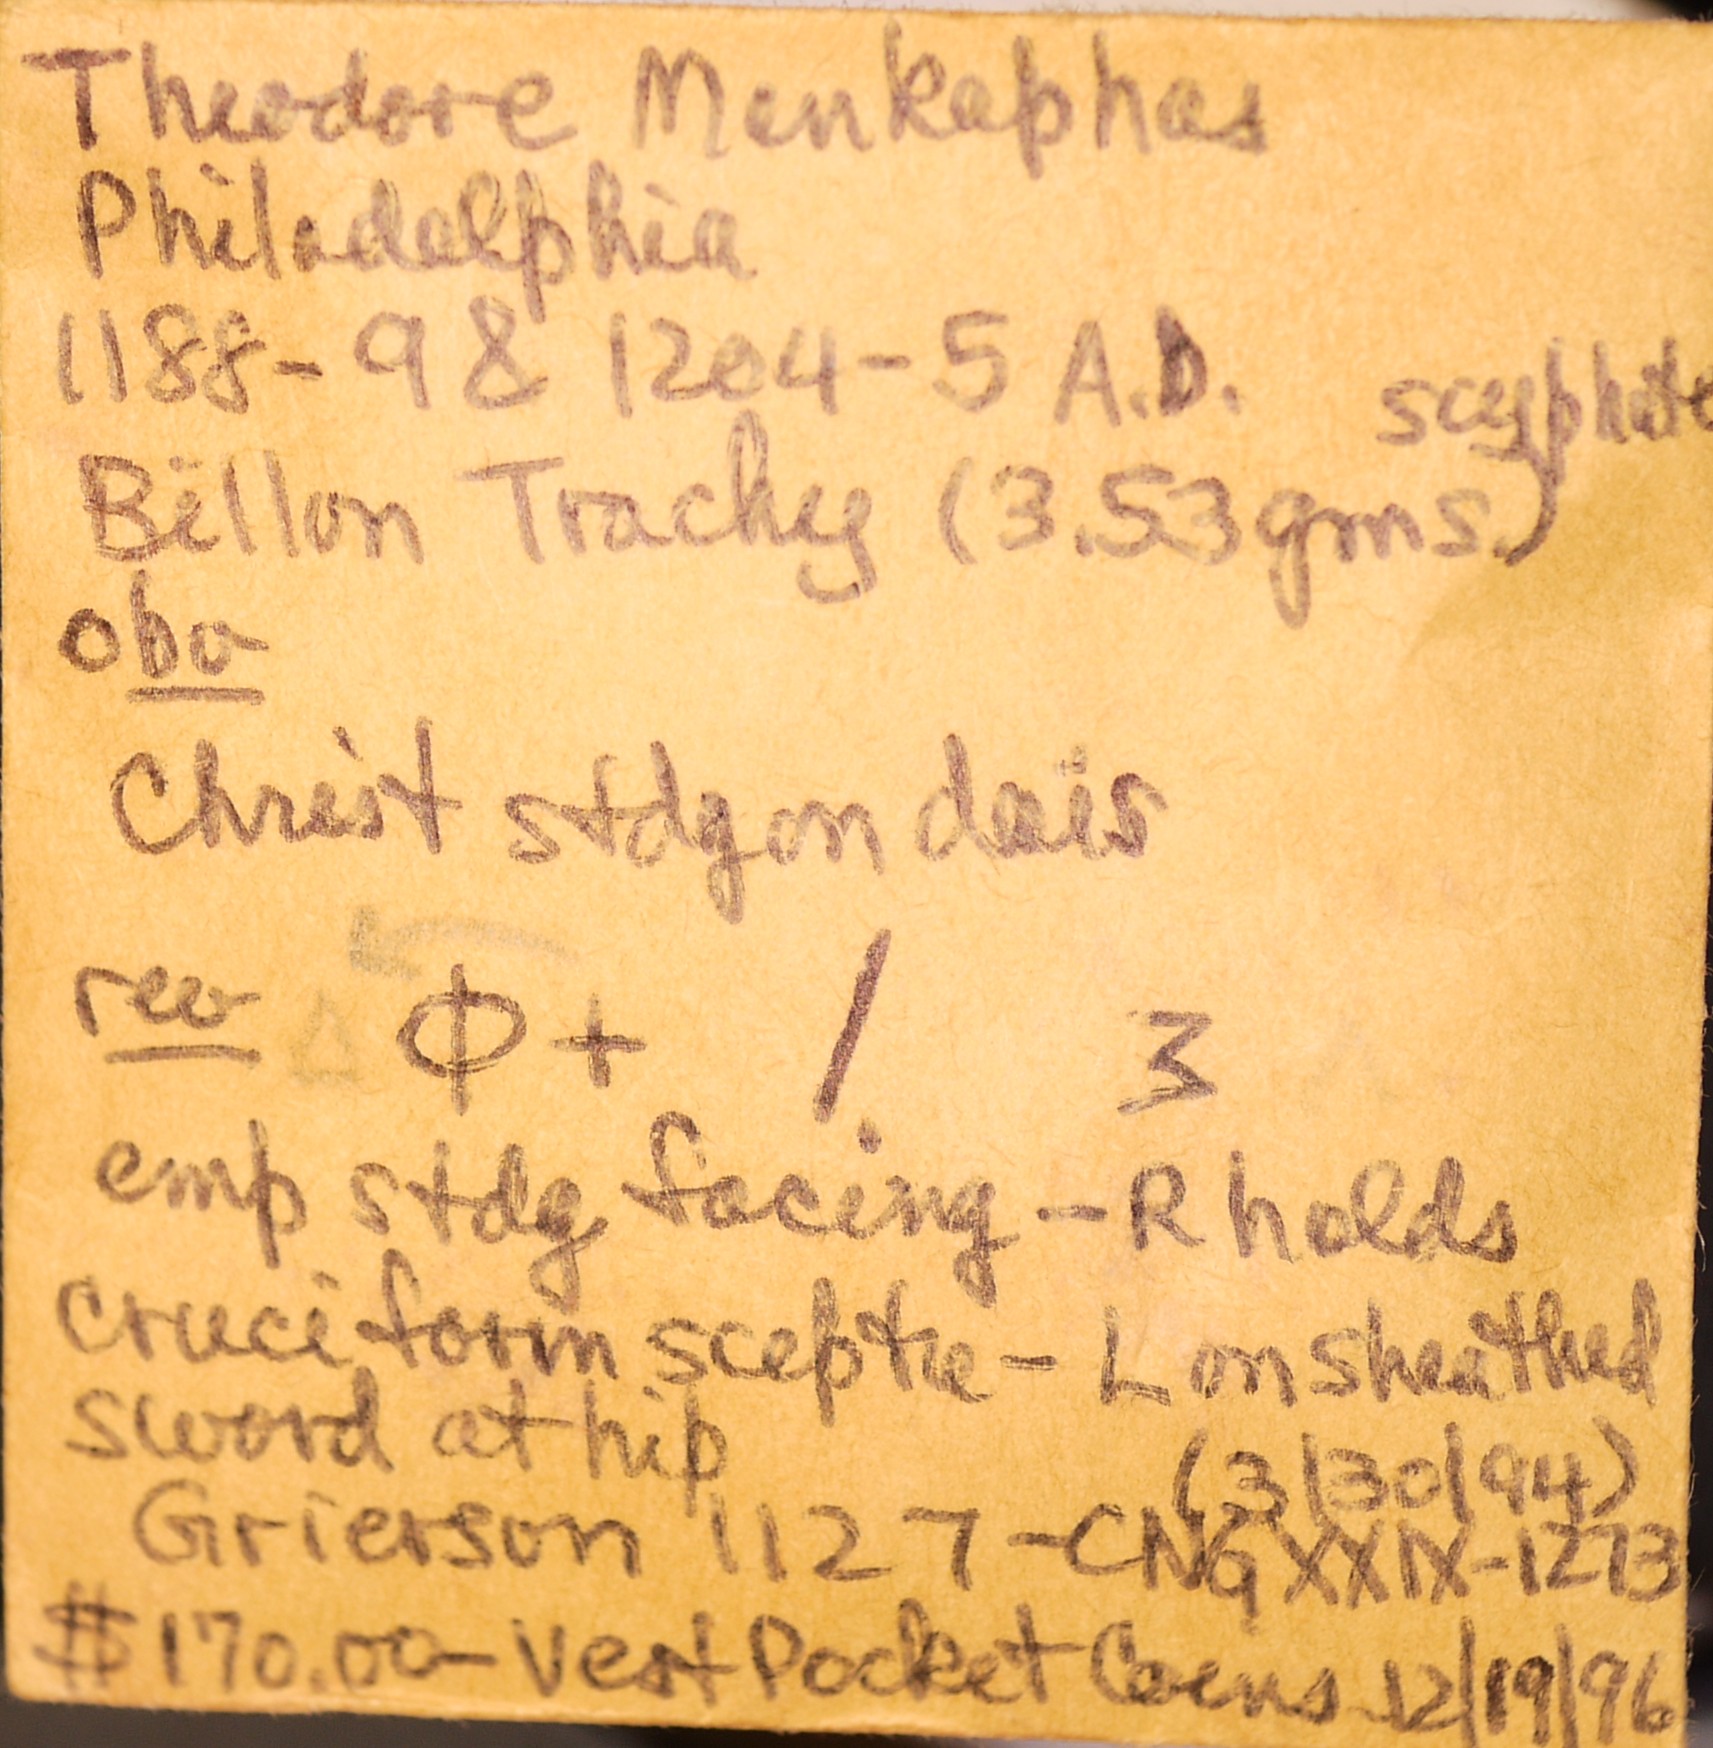 Theodore Mankaphas
Philadelphia
1188-98 1204-5 A.D. scyphate
Billon Trachy (3.53 gms.)
obv
Christ stdg on dais
rev Δ Φ + / 3
emp stdg facing - R holds
cruciform sceptre - L on sheathed
sword at hip
(3/30/94)
Grierson 1127 - CNG XXIX-1273
$170.00 - Vest Pocket Coins 12/19/96